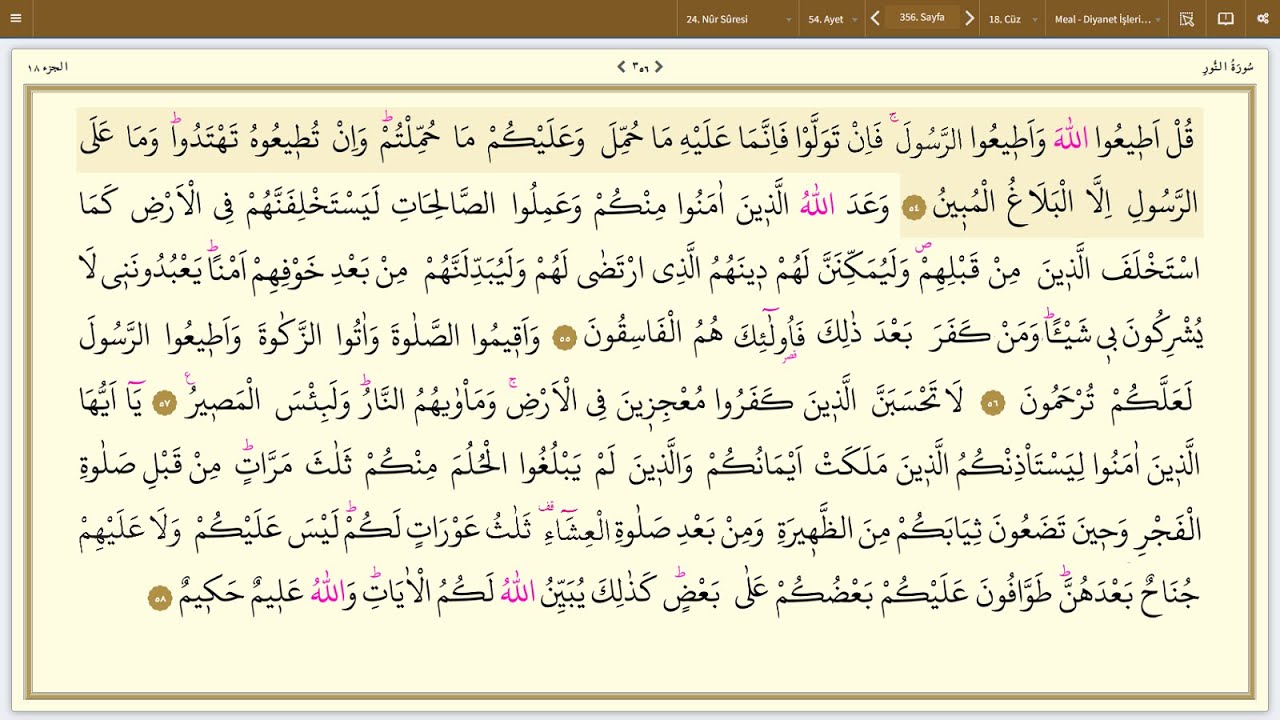 24. Nûr Sûresi 54. Ayet 356. Sayfa 18. Cüz Meal - Diyanet İşleri...
سُورَةُ النُّورِ ٣٥٦ الجزء ١٨
قُلْ اَط۪يعُوا اللّٰهَ وَاَط۪يعُوا الرَّسُولَۚ فَاِنْ تَوَلَّوْا فَاِنَّمَا عَلَيْهِ مَا حُمِّلَ وَعَلَيْكُمْ مَا حُمِّلْتُمْۜ وَاِنْ تُط۪يعُوهُ تَهْتَدُواۜ وَمَا عَلَى
الرَّسُولِ اِلَّا الْبَلَاغُ الْمُب۪ينُ ٥٤ وَعَدَ اللّٰهُ الَّذ۪ينَ اٰمَنُوا مِنْكُمْ وَعَمِلُوا الصَّالِحَاتِ لَيَسْتَخْلِفَنَّهُمْ فِي الْاَرْضِ كَمَا
اسْتَخْلَفَ الَّذ۪ينَ مِنْ قَبْلِهِمْۖ وَلَيُمَكِّنَنَّ لَهُمْ د۪ينَهُمُ الَّذِي ارْتَضٰى لَهُمْ وَلَيُبَدِّلَنَّهُمْ مِنْ بَعْدِ خَوْفِهِمْ اَمْنًاۜ يَعْبُدُونَن۪ي لَا
يُشْرِكُونَ ب۪ي شَيْـًٔاۜ وَمَنْ كَفَرَ بَعْدَ ذٰلِكَ فَاُو۬لٰٓئِكَ هُمُ الْفَاسِقُونَ ٥٥ وَاَق۪يمُوا الصَّلٰوةَ وَاٰتُوا الزَّكٰوةَ وَاَط۪يعُوا الرَّسُولَ
لَعَلَّكُمْ تُرْحَمُونَ ٥٦ لَا تَحْسَبَنَّ الَّذ۪ينَ كَفَرُوا مُعْجِز۪ينَ فِي الْاَرْضِۚ وَمَأْوٰيهُمُ النَّارُۜ وَلَبِئْسَ الْمَص۪يرُ۟ ٥٧ يَٓا اَيُّهَا
الَّذ۪ينَ اٰمَنُوا لِيَسْتَأْذِنْكُمُ الَّذ۪ينَ مَلَكَتْ اَيْمَانُكُمْ وَالَّذ۪ينَ لَمْ يَبْلُغُوا الْحُلُمَ مِنْكُمْ ثَلٰثَ مَرَّاتٍۜ مِنْ قَبْلِ صَلٰوةِ
الْفَجْرِ وَح۪ينَ تَضَعُونَ ثِيَابَكُمْ مِنَ الظَّه۪يرَةِ وَمِنْ بَعْدِ صَلٰوةِ الْعِشَٓاءِ۠ ثَلٰثُ عَوْرَاتٍ لَكُمْۜ لَيْسَ عَلَيْكُمْ وَلَا عَلَيْهِمْ
جُنَاحٌ بَعْدَهُنَّۜ طَوَّافُونَ عَلَيْكُمْ بَعْضُكُمْ عَلٰى بَعْضٍۜ كَذٰلِكَ يُبَيِّنُ اللّٰهُ لَكُمُ الْاٰيَاتِۜ وَاللّٰهُ عَل۪يمٌ حَك۪يمٌ ٥٨